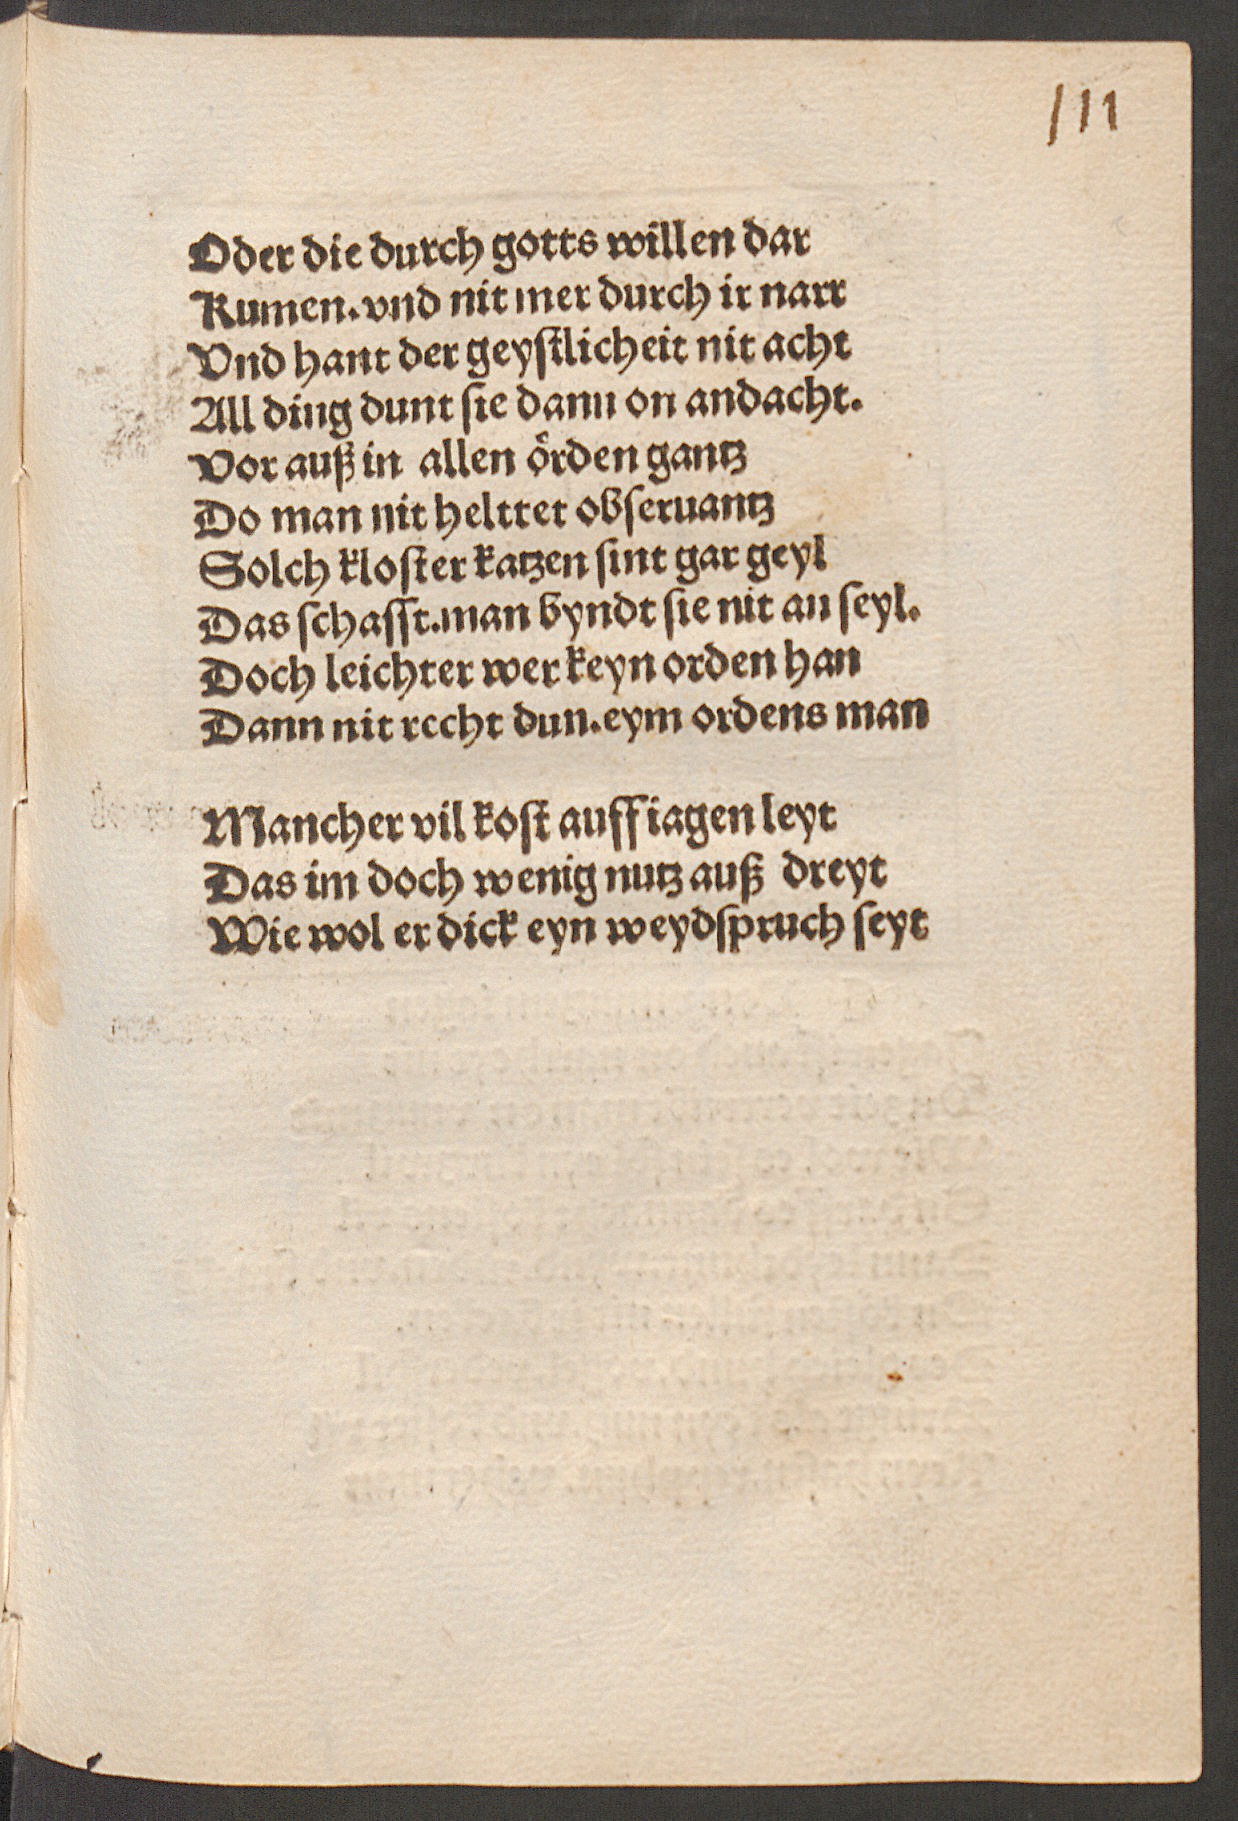 111
Oder die durch gotts willen dar
Kumen.vnd nit mer durch ir narr
Vnd hant der geyſtlicheit nit acht
All ding dunt ſie dann on andacht.
Vor auß in allen oͤrden gantz
Do man nit helttet obſeruantz
Solch kloſter katzen ſint gar geyl
Das ſchafft.man byndt ſie nit an ſeyl.
Doch leichter wer keyn orden han
Dann nit recht dun.eym ordens man
Mancher vil koſt auff iagen leyt
Das im doch wenig nutz auß dreyt
Wie wol er dick eyn weydſpruch ſeyt